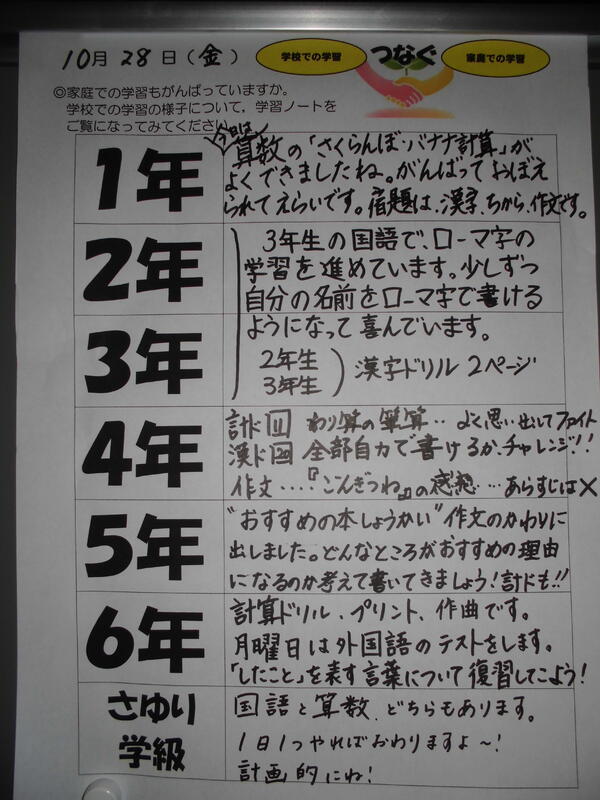 10月 28日(金)
学校での学習 つなぐ 家庭での学習
◎家庭での学習もがんばっていますか。
学校での学習の様子について、学習ノートを
ご覧になってみてください
1年
今日は
算数の「さくらんぼ・バナナ計算」が
よくできましたね。がんばっておぼえ
られてえらいです。宿題は、漢字、ちから、作文です。
2年
3年
3年生の国語で、ローマ字の
学習を進めています。少しずつ
自分の名前をローマ字で書ける
ようになって喜んでいます。
2年生
3年生 ) 漢字ドリル 2ページ
4年
計ド11 わり算の筆算‥よく思い出してファイト
漢ド20 全部自力で書けるか、チャレンジ!!
作文‥‥『ごんぎつね』の感想…あらすじは×
5年
"おすすめの本しょうかい"作文のかわりに
出しました。どんなところがおすすめの理由
になるのか考えて書いてきましょう!計ドも!!
6年
計算ドリル、プリント、作曲です。
月曜日は外国語のテストをします。
「したこと」を表す言葉について復習してこよう!
さゆり
学級
国語と算数、どちらもあります。
1日1つやればおわりますよ～!
計画的にね!